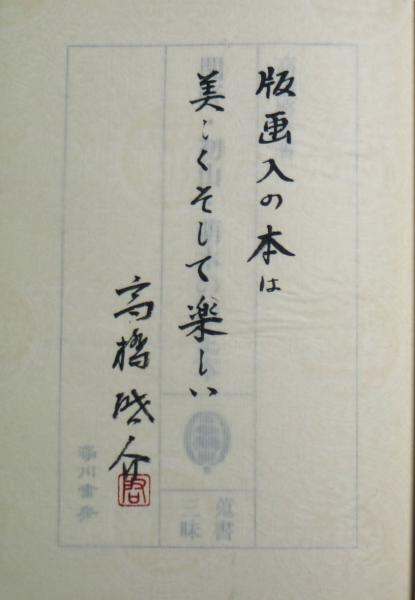 版画入の本は
美しくそして楽しい
高橋啓介
啓
蒐書
三昧